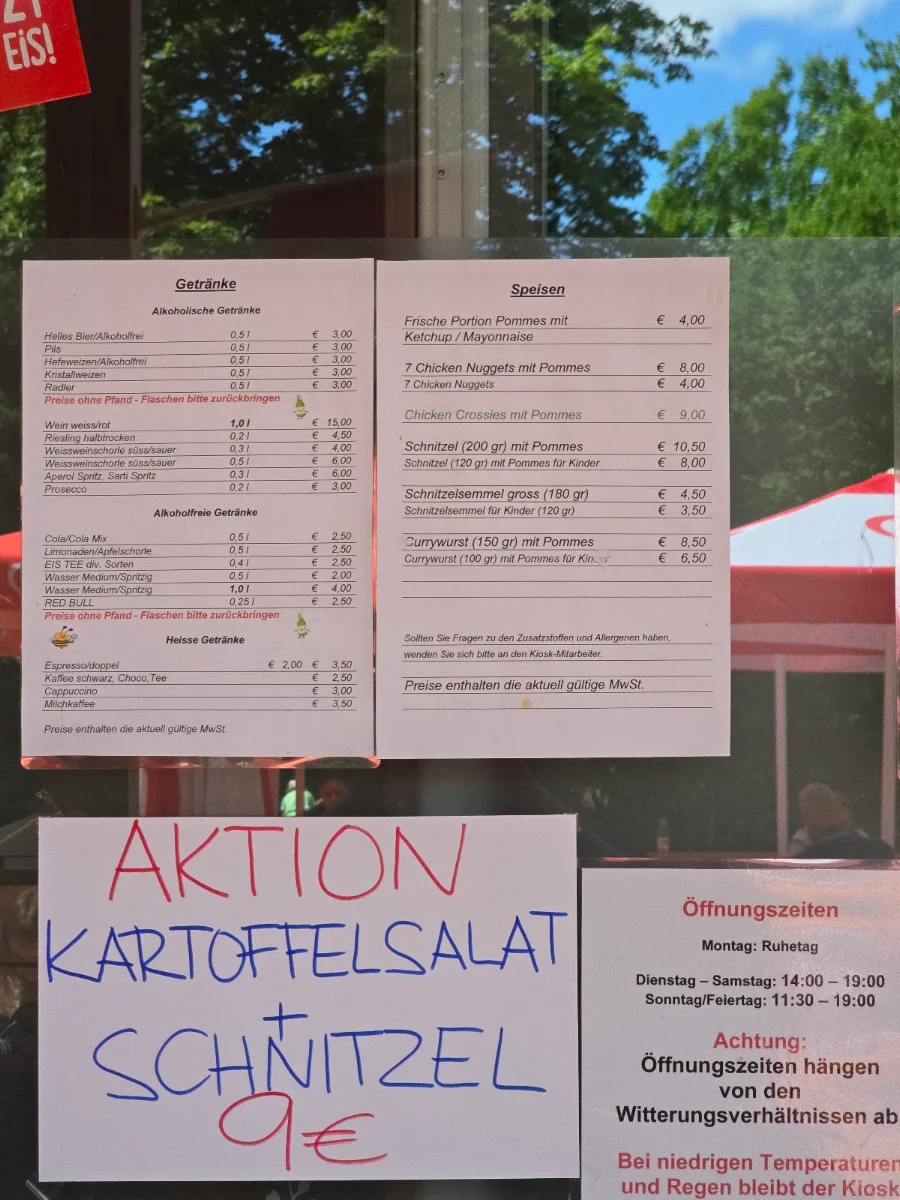 EiS!
Getränke
Alkoholische Getränke
Helles Bier/Alkoholfrei 0,5 l € 3,00
Pils 0,5 l € 3,00
Hefeweizen/Alkoholfrei 0,5 l € 3,00
Kristallweizen 0,5 l € 3,00
Radler 0,5 l € 3,00
Preise ohne Pfand - Flaschen bitte zurückbringen
Wein weiss/rot 1,0 l € 15,00
Riesling halbtrocken 0,2 l € 4,50
Weissweinschorle süss/sauer 0,3 l € 4,00
Weissweinschorle süss/sauer 0,5 l € 6,00
Aperol Spritz, Sarti Spritz 0,3 l € 6,00
Prosecco 0,2 l € 3,00
Alkoholfreie Getränke
Cola/Cola Mix 0,5 l € 2,50
Limonaden/Apfelschorle 0,5 l € 2,50
EIS TEE div. Sorten 0,4 l € 2,50
Wasser Medium/Spritzig 0,5 l € 2,00
Wasser Medium/Spritzig 1,0 l € 4,00
RED BULL 0,25 l € 2,50
Preise ohne Pfand - Flaschen bitte zurückbringen
Heisse Getränke
Espresso/doppel € 2,00 € 3,50
Kaffee schwarz, Choco,Tee € 2,50
Cappuccino € 3,00
Milchkaffee € 3,50
Preise enthalten die aktuell gültige MwSt.
Speisen
Frische Portion Pommes mit € 4,00
Ketchup / Mayonnaise
7 Chicken Nuggets mit Pommes € 8,00
7 Chicken Nuggets € 4,00
Chicken Crossies mit Pommes € 9,00
Schnitzel (200 gr) mit Pommes € 10,50
Schnitzel (120 gr) mit Pommes für Kinder € 8,00
Schnitzelsemmel gross (180 gr) € 4,50
Schnitzelsemmel für Kinder (120 gr) € 3,50
Currywurst (150 gr) mit Pommes € 8,50
Currywurst (100 gr) mit Pommes für Kinder € 6,50
Sollten Sie Fragen zu den Zusatzstoffen und Allergenen haben,
wenden Sie sich bitte an den Kiosk-Mitarbeiter.
Preise enthalten die aktuell gültige MwSt.
AKTION
KARTOFFELSALAT
+
SCHNITZEL
9€
Öffnungszeiten
Montag: Ruhetag
Dienstag – Samstag: 14:00 – 19:00
Sonntag/Feiertag: 11:30 – 19:00
Achtung:
Öffnungszeiten hängen
von den
Witterungsverhältnissen ab
Bei niedrigen Temperaturen
und Regen bleibt der Kiosk